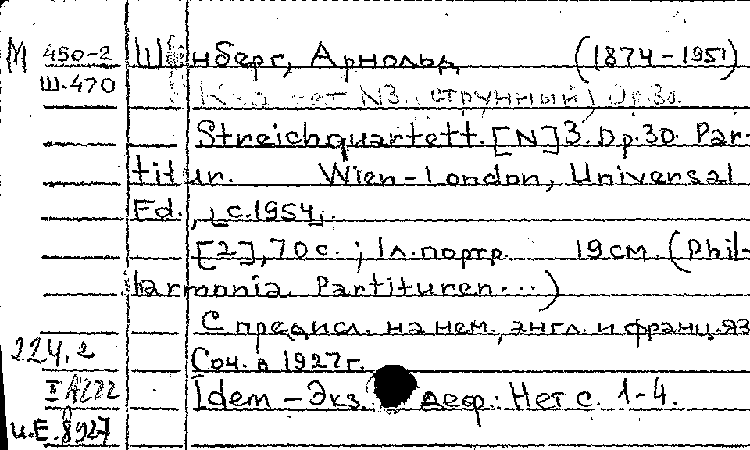 М 450-2 Шёнберг, Арнольд (1874-1951)
Ш-470
N3 струнный, Op. 30
Streichquartett. [N] 3. Op. 30. Par-
titur. Wien-London, Universal
Ed., c.1954.
[2], 70 с.; 1 л. портр. 19 см. (Phil-
harmonia Partituren...)
С предисл. на нем., англ. и франц. яз
224.2 Соч. в 1927 г.
Idem - Экз. деф: Нет с. 1-4.
и.Е. 8927